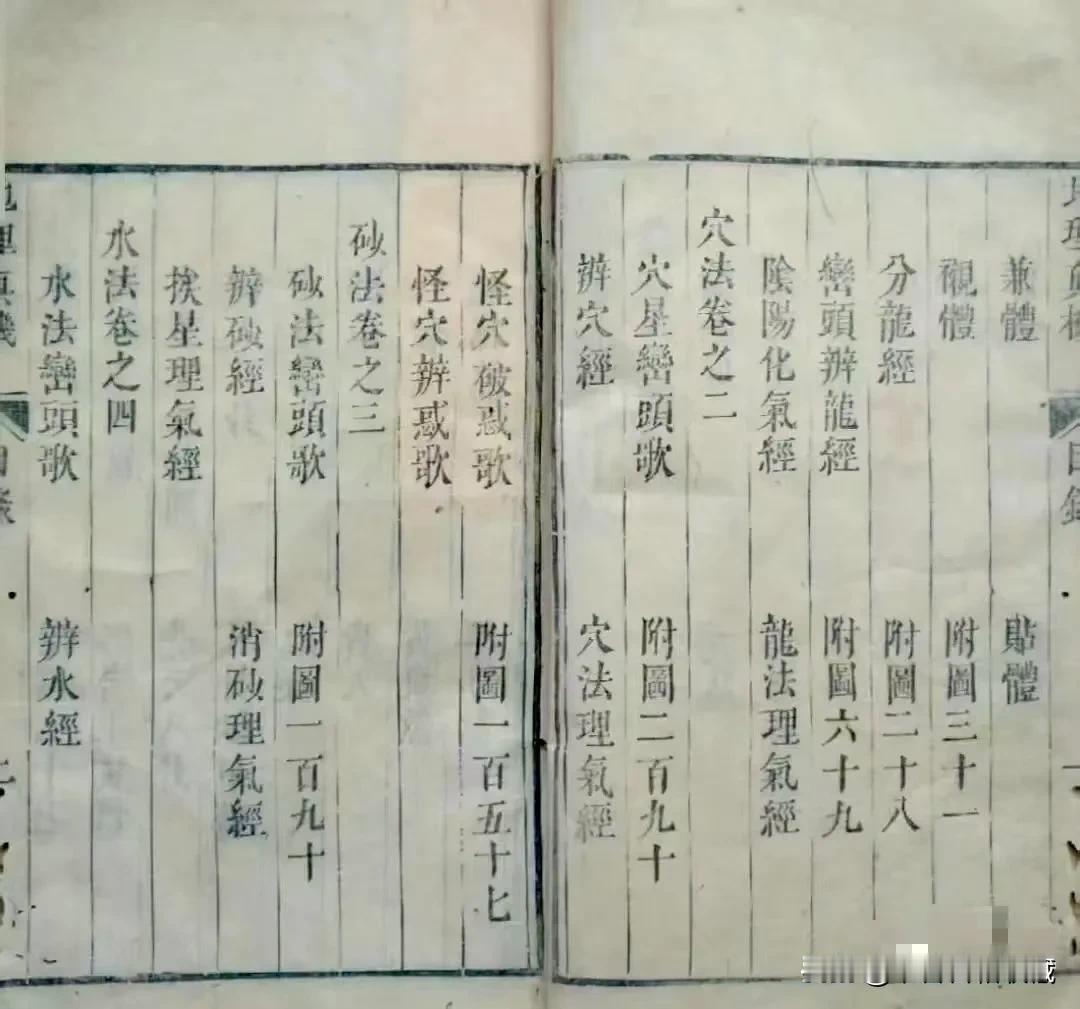 地理真機 目錄
兼體 貼體
體 附圖三十一
分龍經 附圖二十八
巒頭辨龍經 附圖六十九
陰陽化氣經 龍法理氣經
穴法卷之二
穴星巒頭歌 附圖二百九十
辨穴經 穴法理氣經
怪穴破惑歌 附圖一百五十七
怪穴辨惑歌
砂法卷之三
砂法巒頭歌 附圖一百九十
辨砂經 消砂理氣經
挨星理氣經
水法卷之四
水法巒頭歌 辨水經
地理真機 目錄